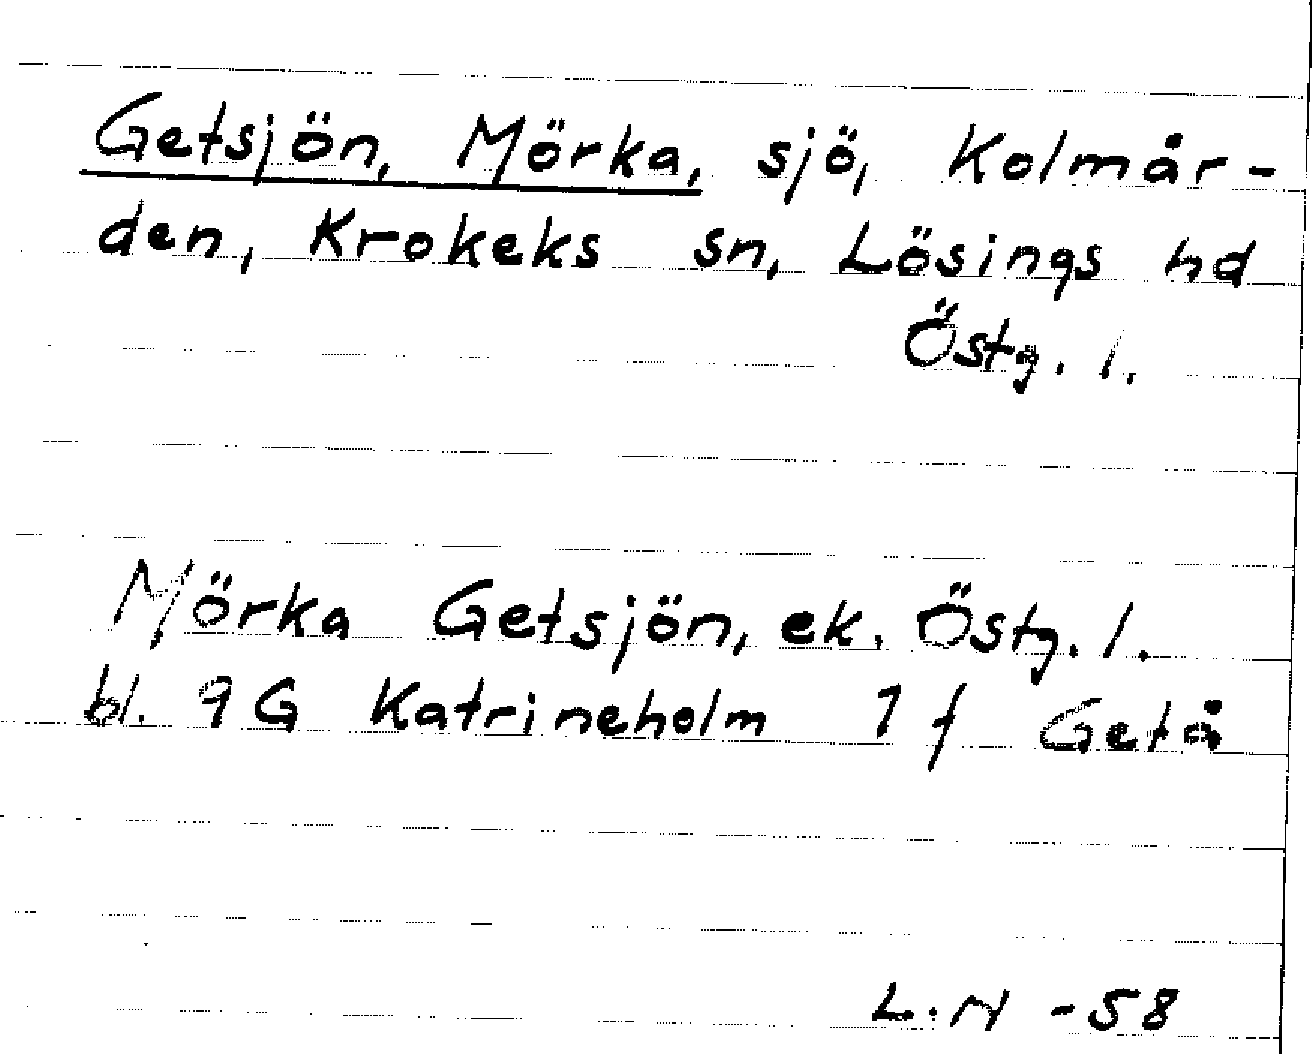 Getsjön, Mörka, sjö, Kolmår-
den, Krokeks sn, Lösings hd
Östg. l.
Mörka Getsjön, ek. Östg. l.
bl. 9G Katrineholm 1 f Getå
L.N -58